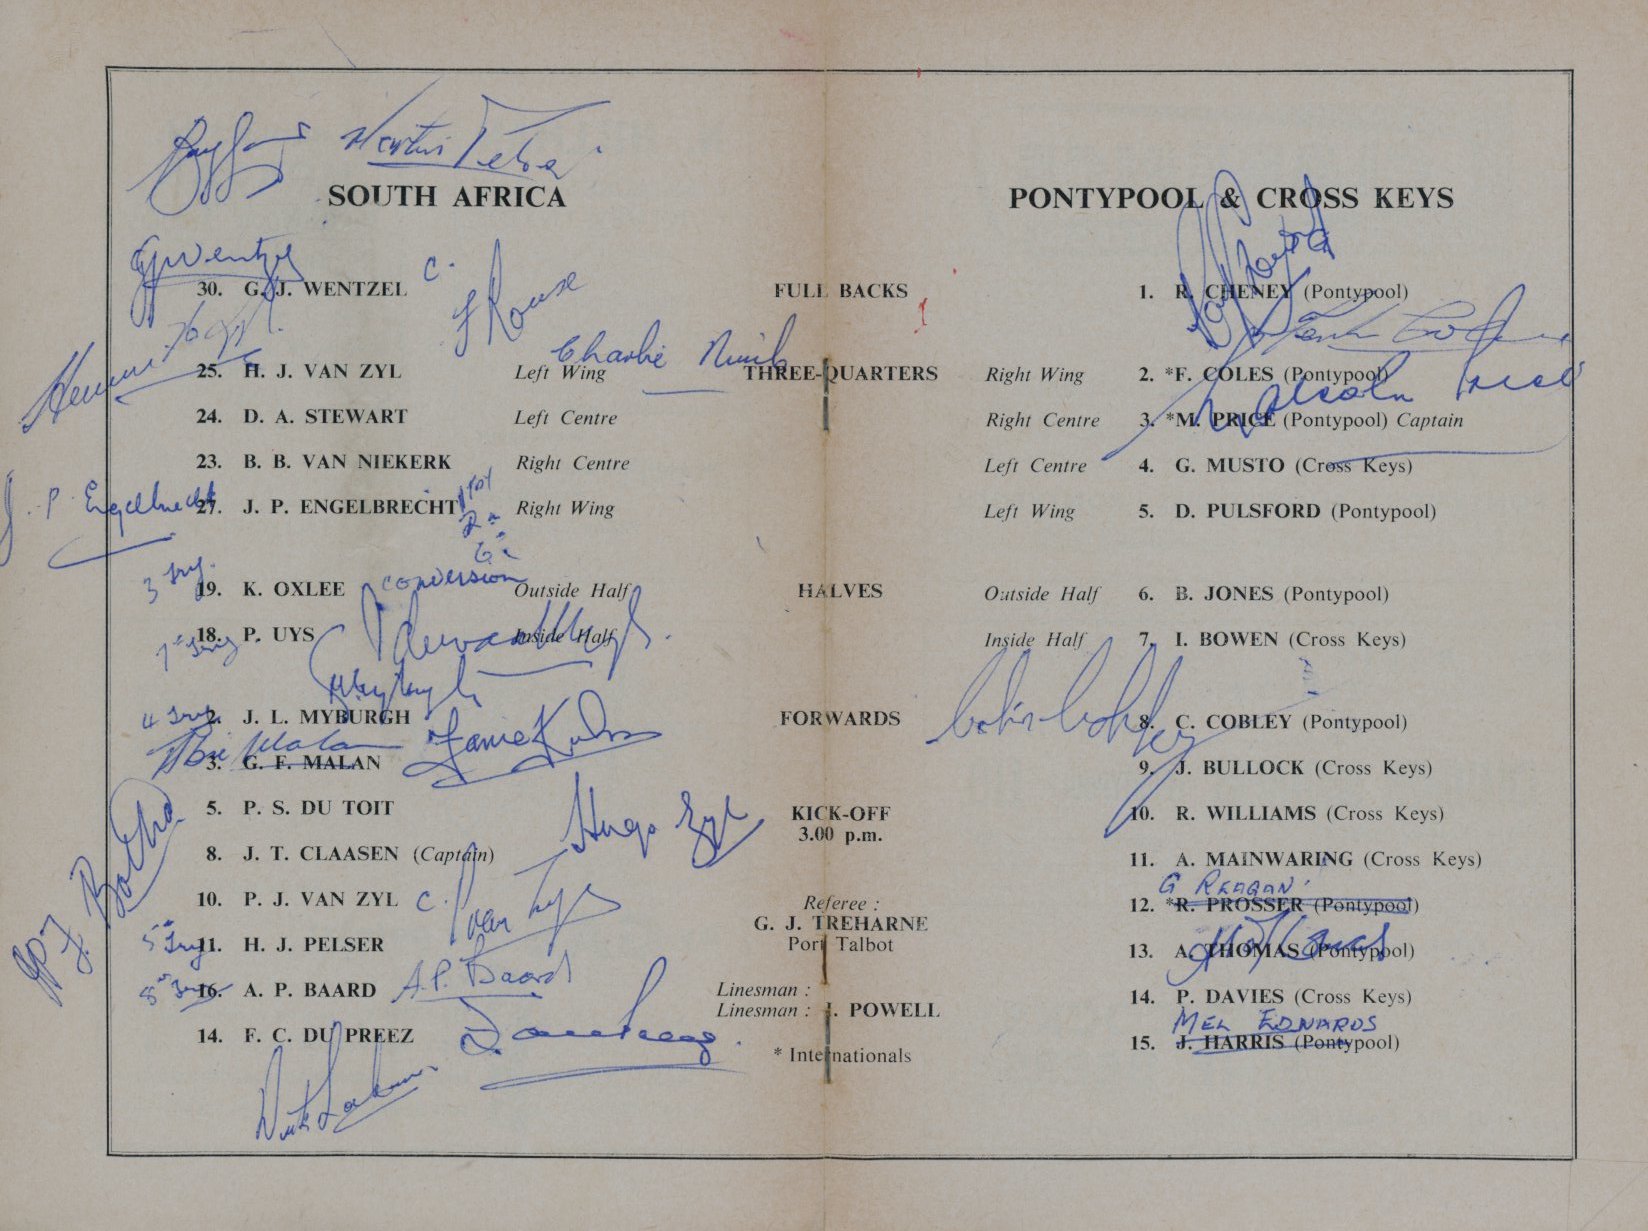 Martin Pelser
SOUTH AFRICA
PONTYPOOL & CROSS KEYS
GJWentzel
30. G. J. WENTZEL C.
F Rouse
FULL BACKS
1. R. CHENEY (Pontypool)
Charlie Nimb
25. H. J. VAN ZYL Left Wing
THREE-QUARTERS
Right Wing 2. *F. COLES (Pontypool)
Malcolm Price
24. D. A. STEWART Left Centre
Right Centre 3. *M. PRICE (Pontypool) Captain
23. B. B. VAN NIEKERK Right Centre
Left Centre 4. G. MUSTO (Cross Keys)
J. P. Engelbrecht
27. J. P. ENGELBRECHT Right Wing
Left Wing 5. D. PULSFORD (Pontypool)
3 Try.
conversion
19. K. OXLEE Outside Half
HALVES
Outside Half 6. B. JONES (Pontypool)
18. P. UYS Inside Half
Inside Half 7. I. BOWEN (Cross Keys)
4 Try
2. J. L. MYBURGH
FORWARDS
8. C. COBLEY (Pontypool)
Abie Malan
3. G. F. MALAN
9. J. BULLOCK (Cross Keys)
5. P. S. DU TOIT
KICK-OFF
3.00 p.m.
10. R. WILLIAMS (Cross Keys)
Hugo
8. J. T. CLAASEN (Captain)
11. A. MAINWARING (Cross Keys)
G REAGAN
10. P. J. VAN ZYL C.
Referee :
G. J. TREHARNE
Port Talbot
12. *R. PROSSER (Pontypool)
J. P. F. Botha
11. H. J. PELSER
13. A. THOMAS (Pontypool)
16. A. P. BAARD A.P. Baard
Linesman :
Linesman : J. POWELL
14. P. DAVIES (Cross Keys)
MEL EDWARDS
14. F. C. DU PREEZ
* Internationals
15. J. HARRIS (Pontypool)